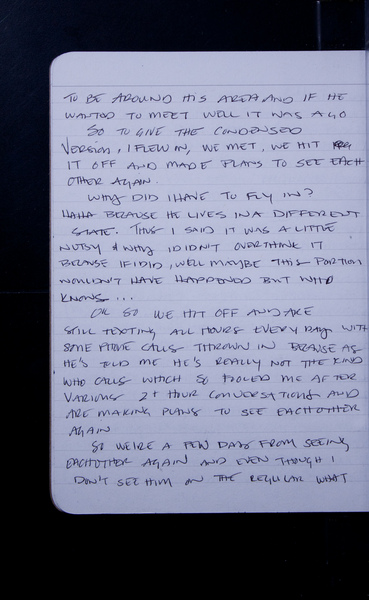 TO BE AROUND HIS AREA AND IF HE
WANTED TO MEET WELL IT WAS A GO
SO TO GIVE THE CONDENSED
VERSION, I FLEW IN, WE MET, WE HIT
IT OFF AND MADE PLANS TO SEE EACH
OTHER AGAIN.
WHY DID I HAVE TO FLY IN?
HAHA BECAUSE HE LIVES IN A DIFFERENT
STATE. THUS I SAID IT WAS A LITTLE
NUTSY & WHY I DIDN'T OVERTHINK IT
BECAUSE IF I DID, WELL MAYBE THIS PORTION
WOULDN'T HAVE HAPPENED BUT WHO
KNOWS ...
OK SO WE HIT OFF AND ARE
STILL TEXTING ALL HOURS EVERY DAY WITH
SOME PHONE CALLS THROWN IN BECAUSE AS
HE'S TOLD ME HE'S REALLY NOT THE KIND
WHO CALLS WHICH SO FOOLED ME AFTER
VARIOUS 2+ HOUR CONVERSATIONS AND
ARE MAKING PLANS TO SEE EACH OTHER
AGAIN
SO WE'RE A FEW DAYS FROM SEEING
EACHOTHER AGAIN AND EVEN THOUGH I
DON'T SEE HIM ON THE REGULAR WHAT